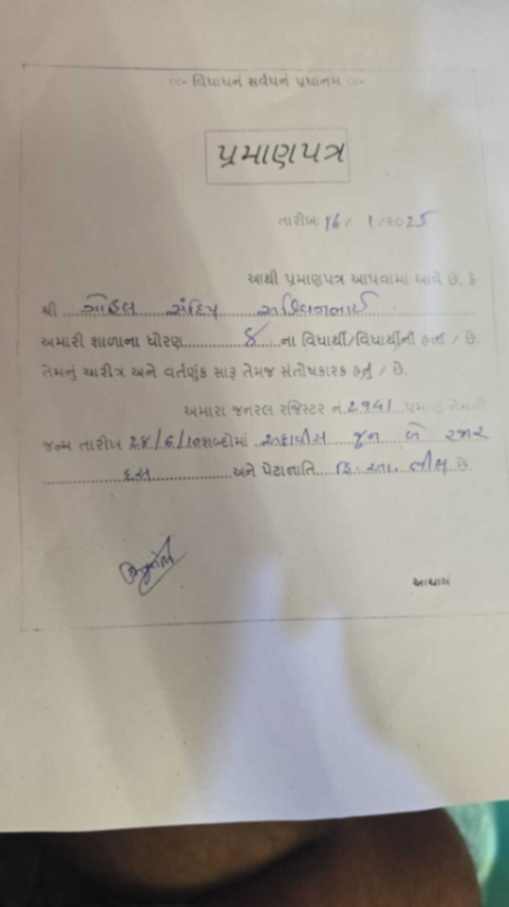 વિદ્યાધનં સર્વધનં પ્રધાનમ
પ્રમાણપત્ર
તારીખ 16 / 1 /2025
આથી પ્રમાણપત્ર આપવામાં આવે છે. કે
શ્રી ગોહિલ સંદિપ
અમારી શાળાના ધોરણ ના વિદ્યાર્થી/વિદ્યાર્થીની હતાં / છે.
તેમનું ચારીત્ર અને વર્તણુંક સારૂ તેમજ સંતોષકારક હતું / છે.
અમારા જનરલ રજિસ્ટર નં. 2941 પ્રમાણે તેમની
જન્મ તારીખ 28/6/10 શબ્દોમાં અઠ્ઠાવીસ જૂન બે હજાર
દસ અને પેટાજ્ઞાતિ છે
આચાર્ય